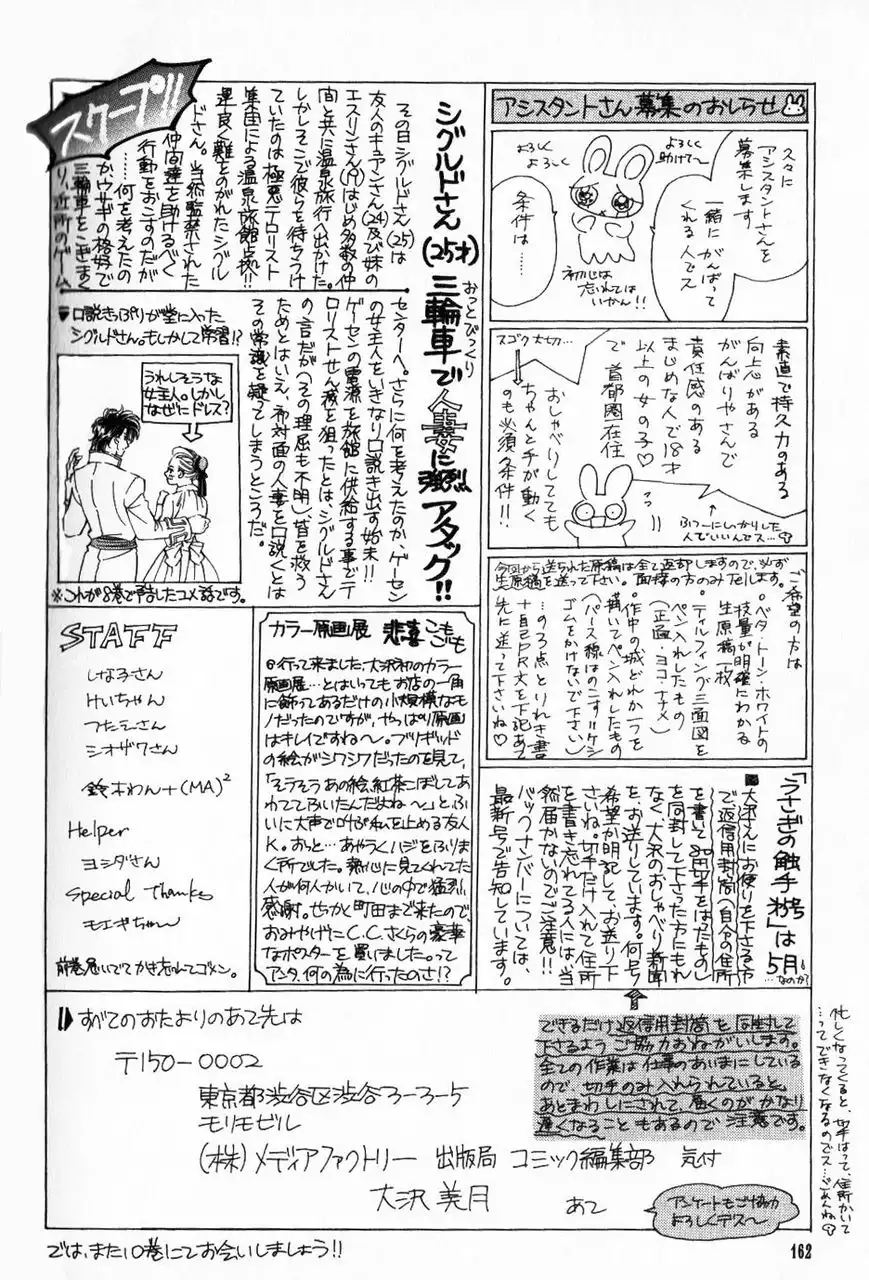 アシスタントさん募集のおしらせ
久々に
アシスタントさんを
募集します
一緒に がんばって
くれる人でス
よろしく
助けて〜
よろしく
よろしく
条件は……
初心は
忘れては
いかん!!
素直で持久力のある
向上心がある
がんばりやさんで
責任感のある
まじめな人で18才
以上の女の子♡
で 首都圏在住
スゴク大切…
おしゃべりしてても
ちゃんと手が動く
のも必須条件!!
ふつーにしっかりした
人でいいんでス…
今回から送られた原稿は全て返却しますので、必ず
生原稿を送って下さい。面接の方のみTelします。
ご希望の方は
・ベタ・トーン・ホワイトの
技量が明確にわかる
生原稿一枚
・ティルフィング三面図を
ペン入れしたもの
(正面・ヨコ・ナナメ)
・作中の城どれか一つを
描いてペン入れしたもの
(パース線はのこす!!ケシ
ゴムをかけないで下さい)
…の3点とりれき書
+自己PR文を下記あて
先に送って下さいね♡
スクープ!!
シグルドさん(25才)三輪車で人妻に強烈アタック!!
おっとびっくり
その日シグルドさん(25)は
友人のキュアンさん(24)及び妹の
エスリンさん(19)はじめ多数の仲
間と共に温泉旅行へ出かけた。
しかしそこで彼らを待ちうけ
ていたのは極悪テロリスト
集団による温泉旅館占拠!!
運良く難をのがれたシグル
ドさん。当然監禁された
仲間達を助けるべく
行動をおこすのだが
……何を考えたの
かウサギの格好で
三輪車をこぎまく
り、近所のゲーム
センターへ。さらに何を考えたのか、ゲーセン
の女主人をいきなり口説き出す始末!!
ゲーセンの電源を旅館に供給する事でテ
ロリストせん滅を狙ったとは、シグルドさん
の言だが(その理屈も不明)、皆を救う
ためとはいえ、初対面の人妻を口説くとは
その常識を疑ってしまうところだ。
▼口説きっぷりが堂に入った
シグルドさん。もしかして学習!?
うれしそうな
女主人。しかし
なぜにドレス?
※これが8巻で予告したコメ話です。
「うさぎの触手 号」は5月
…なのか?
■大沢さんにお便りを下さる方
で、返信用封筒(自分の住所
を書いて80円切手をはったもの)
を同封して下さった方にもれ
なく大沢のおしゃべり新聞
を、お送りしています。何号
希望か明記して、お送り下
さいね。切手だけ入れて住所
を書き忘れてる人には、当
然届かないのでご注意!!
バックナンバーについては、
最新号で告知しています。
カラー原画展 悲喜こもごも
◎行って来ました:大沢初のカラー
原画展…とはいってもお店の一角
に飾ってあるだけの小規模なモ
ノだったのですが、やっぱり原画
はキレイですね〜。ブリギッド
の絵がシワシワだったのを見て、
「そうそうあの絵、紅茶こぼしてあ
わててふいたんだよね〜」と、ふ
いに大声で叫ぶ私を止める友人
K。おっと…あやうくハジをふりま
く所でした。熱心に見てくれてた
人が何人かいて、心の中で猛烈
感謝。せっかく町田まで来たので、
おみやげにC.C.さくらの豪華
なポスターを買いました。って
アンタ、何の為に行ったのさ!?
STAFF
しな子さん
けいちゃん
つたえさん
シオザワさん
鈴木わん+(MA)²
Helper
ヨシダさん
Special Thanks
モエギちゃん
前巻急いでてかき忘れてゴメン。
できるだけ返信用封筒を同封して
下さるようご協力おねがいします。
全ての作業は仕事のあいまにしている
ので、切手のみ入れられていると、
あとまわしにされて、届くのがかなり
遅くなることもあるので注意です。
忙しくなってくると、切手はって、住所かいて
…ってできなくなるのでス…ごめんね
すべてのおたよりのあて先は
〒150-0002
東京都渋谷区渋谷3-3-5
モリモビル
(株)メディアファクトリー 出版局 コミック編集部 気付
大沢美月 あて
アンケートもご協力
よろしくデス〜
では、また10巻にてお会いしましょう!!
162